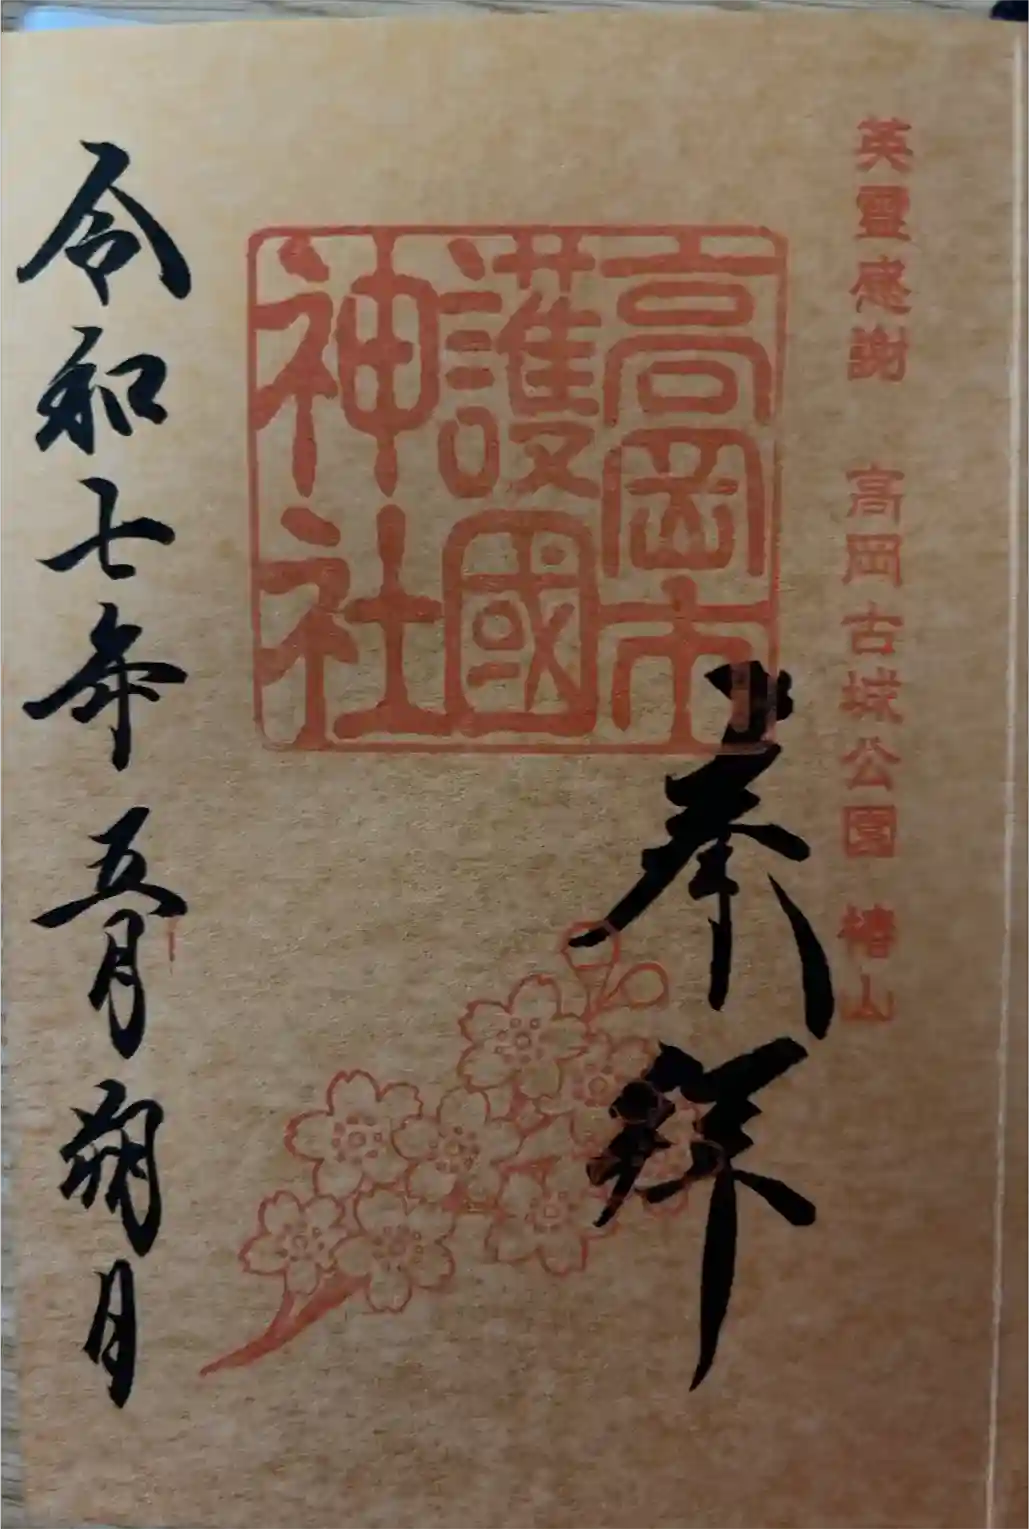 英靈感謝 高岡古城公園 椿山
奉拝
高岡市
護國
神社
令和七年五月朔月